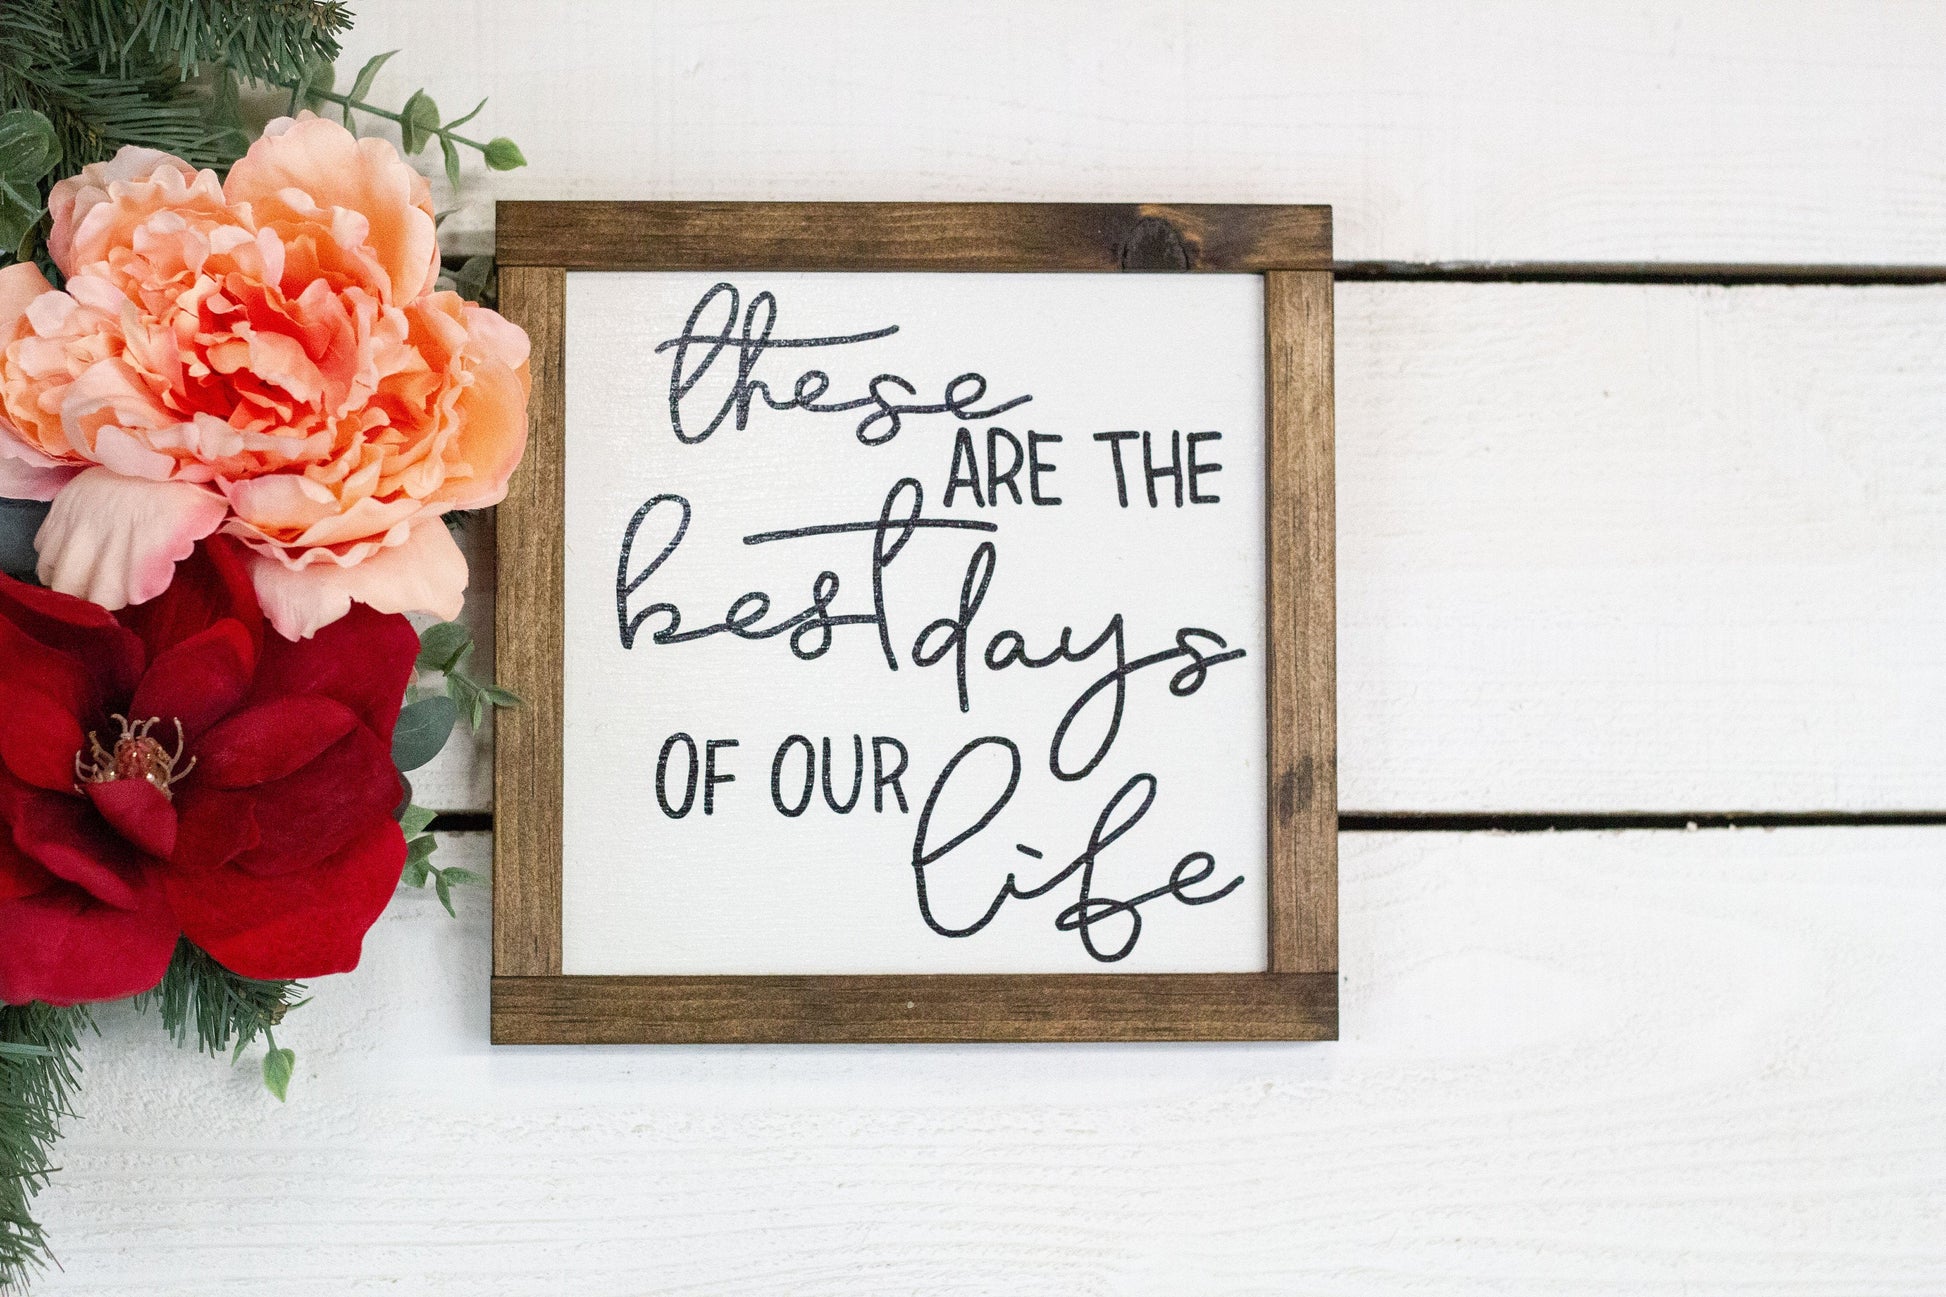 these
ARE THE
best days
OF OUR
life